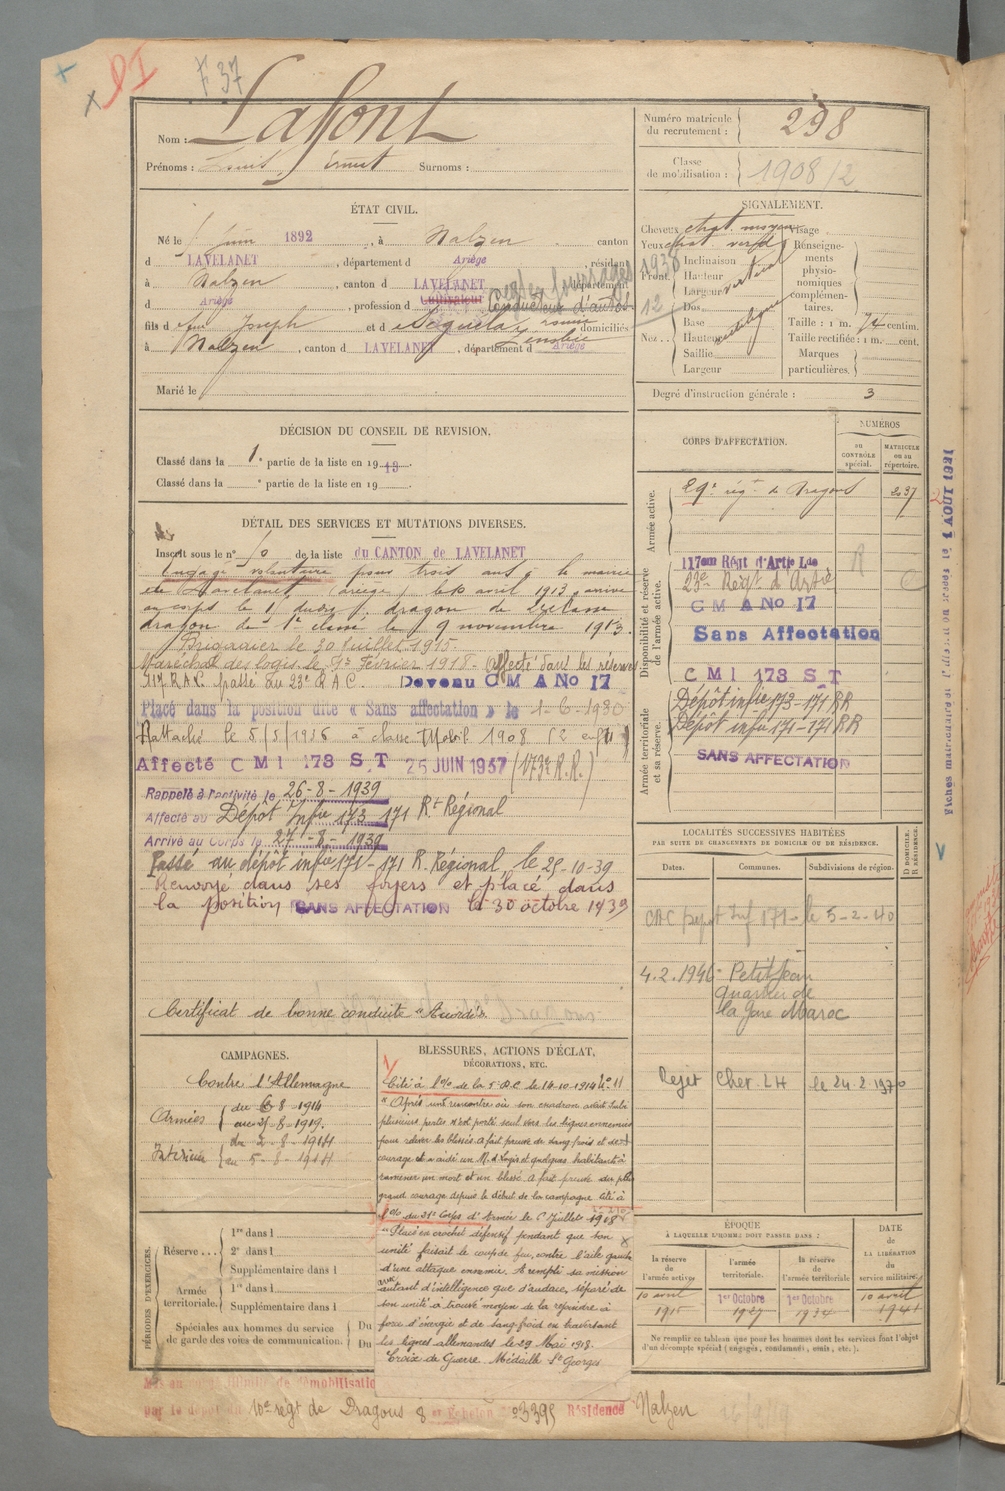 F 37
Nom : Lafont
Prénoms : Louis, Ernest Surnoms :
Numéro matricule du recrutement : 298
Classe de mobilisation : 1908/2
ÉTAT CIVIL.
Né le juin 1892, à Nalzen canton
d LAVELANET, département d Ariège, résidant
à Nalzen, canton d LAVELANET, département
d Ariège, profession d Cultivateur Conducteur d'autos
fils d feu Joseph et d domiciliés
à Nalzen, canton d LAVELANET, département d Ariège
Marié le
SIGNALEMENT.
Cheveux chat. moyen Visage
Yeux chat. verd
Front. Inclinaison vertical
Hauteur
Largeur
Nez. Dos rectiligne
Base
Hauteur
Saillie
Largeur
Renseignements physionomiques complémentaires.
Taille : 1 m. 74 centim.
Taille rectifiée : 1 m. cent.
Marques particulières.
Degré d'instruction générale : 3
DÉCISION DU CONSEIL DE REVISION.
Classé dans la 1e partie de la liste en 1913.
Classé dans la e partie de la liste en 19
CORPS D'AFFECTATION.
NUMÉROS
au CONTRÔLE spécial.
MATRICULE ou au répertoire.
Armée active.
29e régt de Dragons 2037
Disponibilité et réserve de l'armée active.
117eme Régt d'Artie Lde
23e Régt d'Artie
C M A No 17
Sans Affectation
C M I 173 S.T
Armée territoriale et sa réserve.
Dépôt infie 173-171 RR
Dépôt infie 171-171 RR
SANS AFFECTATION
DÉTAIL DES SERVICES ET MUTATIONS DIVERSES.
Inscrit sous le no de la liste du CANTON de LAVELANET
Engagé volontaire pour trois ans à la mairie
de Lavelanet (Ariège) le 10 avril 1913 arrivé
au corps le dragon de 2e classe
dragon de 1e classe le 9 novembre 1913.
Brigadier le 30 Juillet 1915.
Maréchal des logis le Février 1918 - Affecté dans les réserves
117 RAL passé au 23e RAC. Devenu C M A No 17
Placé dans la position dite « Sans affectation » le 1-6-1930
Rattaché le 5/5/1936 à classe Mobil 1908
Affecté C M I 173 S.T 25 JUIN 1937 (173e R.R.)
Rappelé à l'activité le 26-8-1939
Affecté au Dépôt Infie 173-171 Rt Régional
Arrivé au Corps le 27-8-1939
Passé au dépôt infie 171-171 R. Régional le 25-10-39
Renvoyé dans ses foyers et placé dans
la position SANS AFFECTATION le 30 octobre 1939
Certificat de bonne conduite "Accordé".
LOCALITÉS SUCCESSIVES HABITÉES
PAR SUITE DE CHANGEMENTS DE DOMICILE OU DE RÉSIDENCE.
Dates. Communes. Subdivisions de région. D DOMICILE. R RÉSIDENCE.
CAC Dépôt Inf 171 - le 5-2-40
4.2.1946 Petitjean
quartier de
la gare Maroc
Rejet Chev. LH le 24-2-1970
CAMPAGNES.
Contre l'Allemagne
Armées du 6-8-1914
au 25-8-1919.
Intérieur du 2-8-1914
au 5-8-1914
BLESSURES, ACTIONS D'ÉCLAT,
DÉCORATIONS, ETC.
Cité à l'o/o de la 5e D.C. le 14-10-1914 No 11
" Après une rencontre où son escadron avait subi
plusieurs pertes s'est porté seul vers les lignes ennemies
pour relever les blessés. A fait preuve de sang froid et de
courage et a aidé un M. d Logis et quelques habitants à
ramener un mort et un blessé. A fait preuve du plus
grand courage depuis le début de la campagne. Cité à
l'o/o du 21e Corps d'Armée le Juillet 1918
" Placé en crochet défensif pendant que son
unité faisait le coup de feu contre l'aile gauche
d'une attaque ennemie. A rempli sa mission
avec autant d'intelligence que d'audace, séparé de
son unité a trouvé moyen de la rejoindre à
force d'énergie et de sang-froid en traversant
les lignes allemandes le 29 Mai 1918.
Croix de Guerre. Médaille St Georges
PÉRIODES D'EXERCICES.
Réserve... 1re dans l
2e dans l
Supplémentaire dans l
Armée territoriale. 1re dans l
Supplémentaire dans l
Spéciales aux hommes du service de garde des voies de communication. Du
Du
ÉPOQUE
À LAQUELLE L'HOMME DOIT PASSER DANS :
la réserve de l'armée active. l'armée territoriale. la réserve de l'armée territoriale
DATE DE LA LIBÉRATION du service militaire.
10 avril 1915 1er Octobre 1927 1er Octobre 1934 10 avril 1941
Ne remplir ce tableau que pour les hommes dont les services font l'objet
d'un décompte spécial (engagés, condamnés, omis, etc.).
Mis en congé illimité de démobilisation
par le dépôt du 10e régt de Dragons 8 er Echelon no 3395 Résidence Nalzen